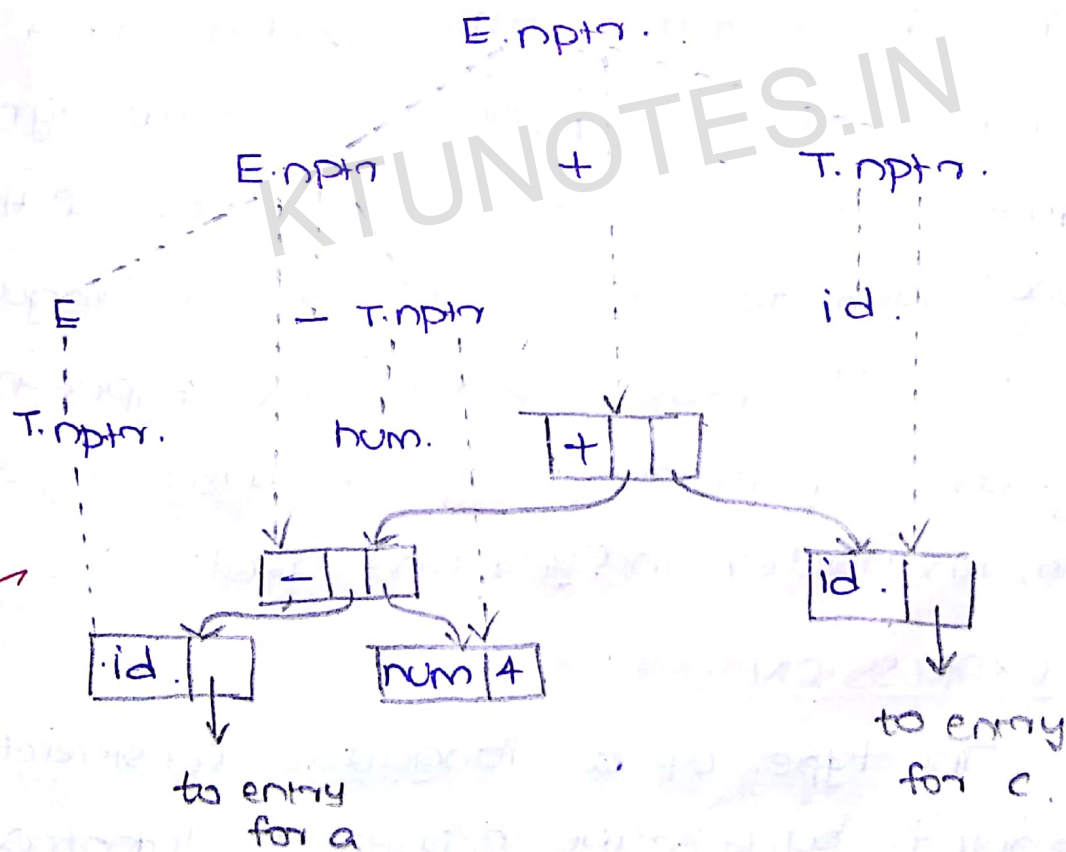 E.nptr.
KTUNOTES.IN
E.nptr + T.nptr.
E - T.nptr id.
T.nptr. num. +
- id.
id. num 4
to entry for c.
to entry for a